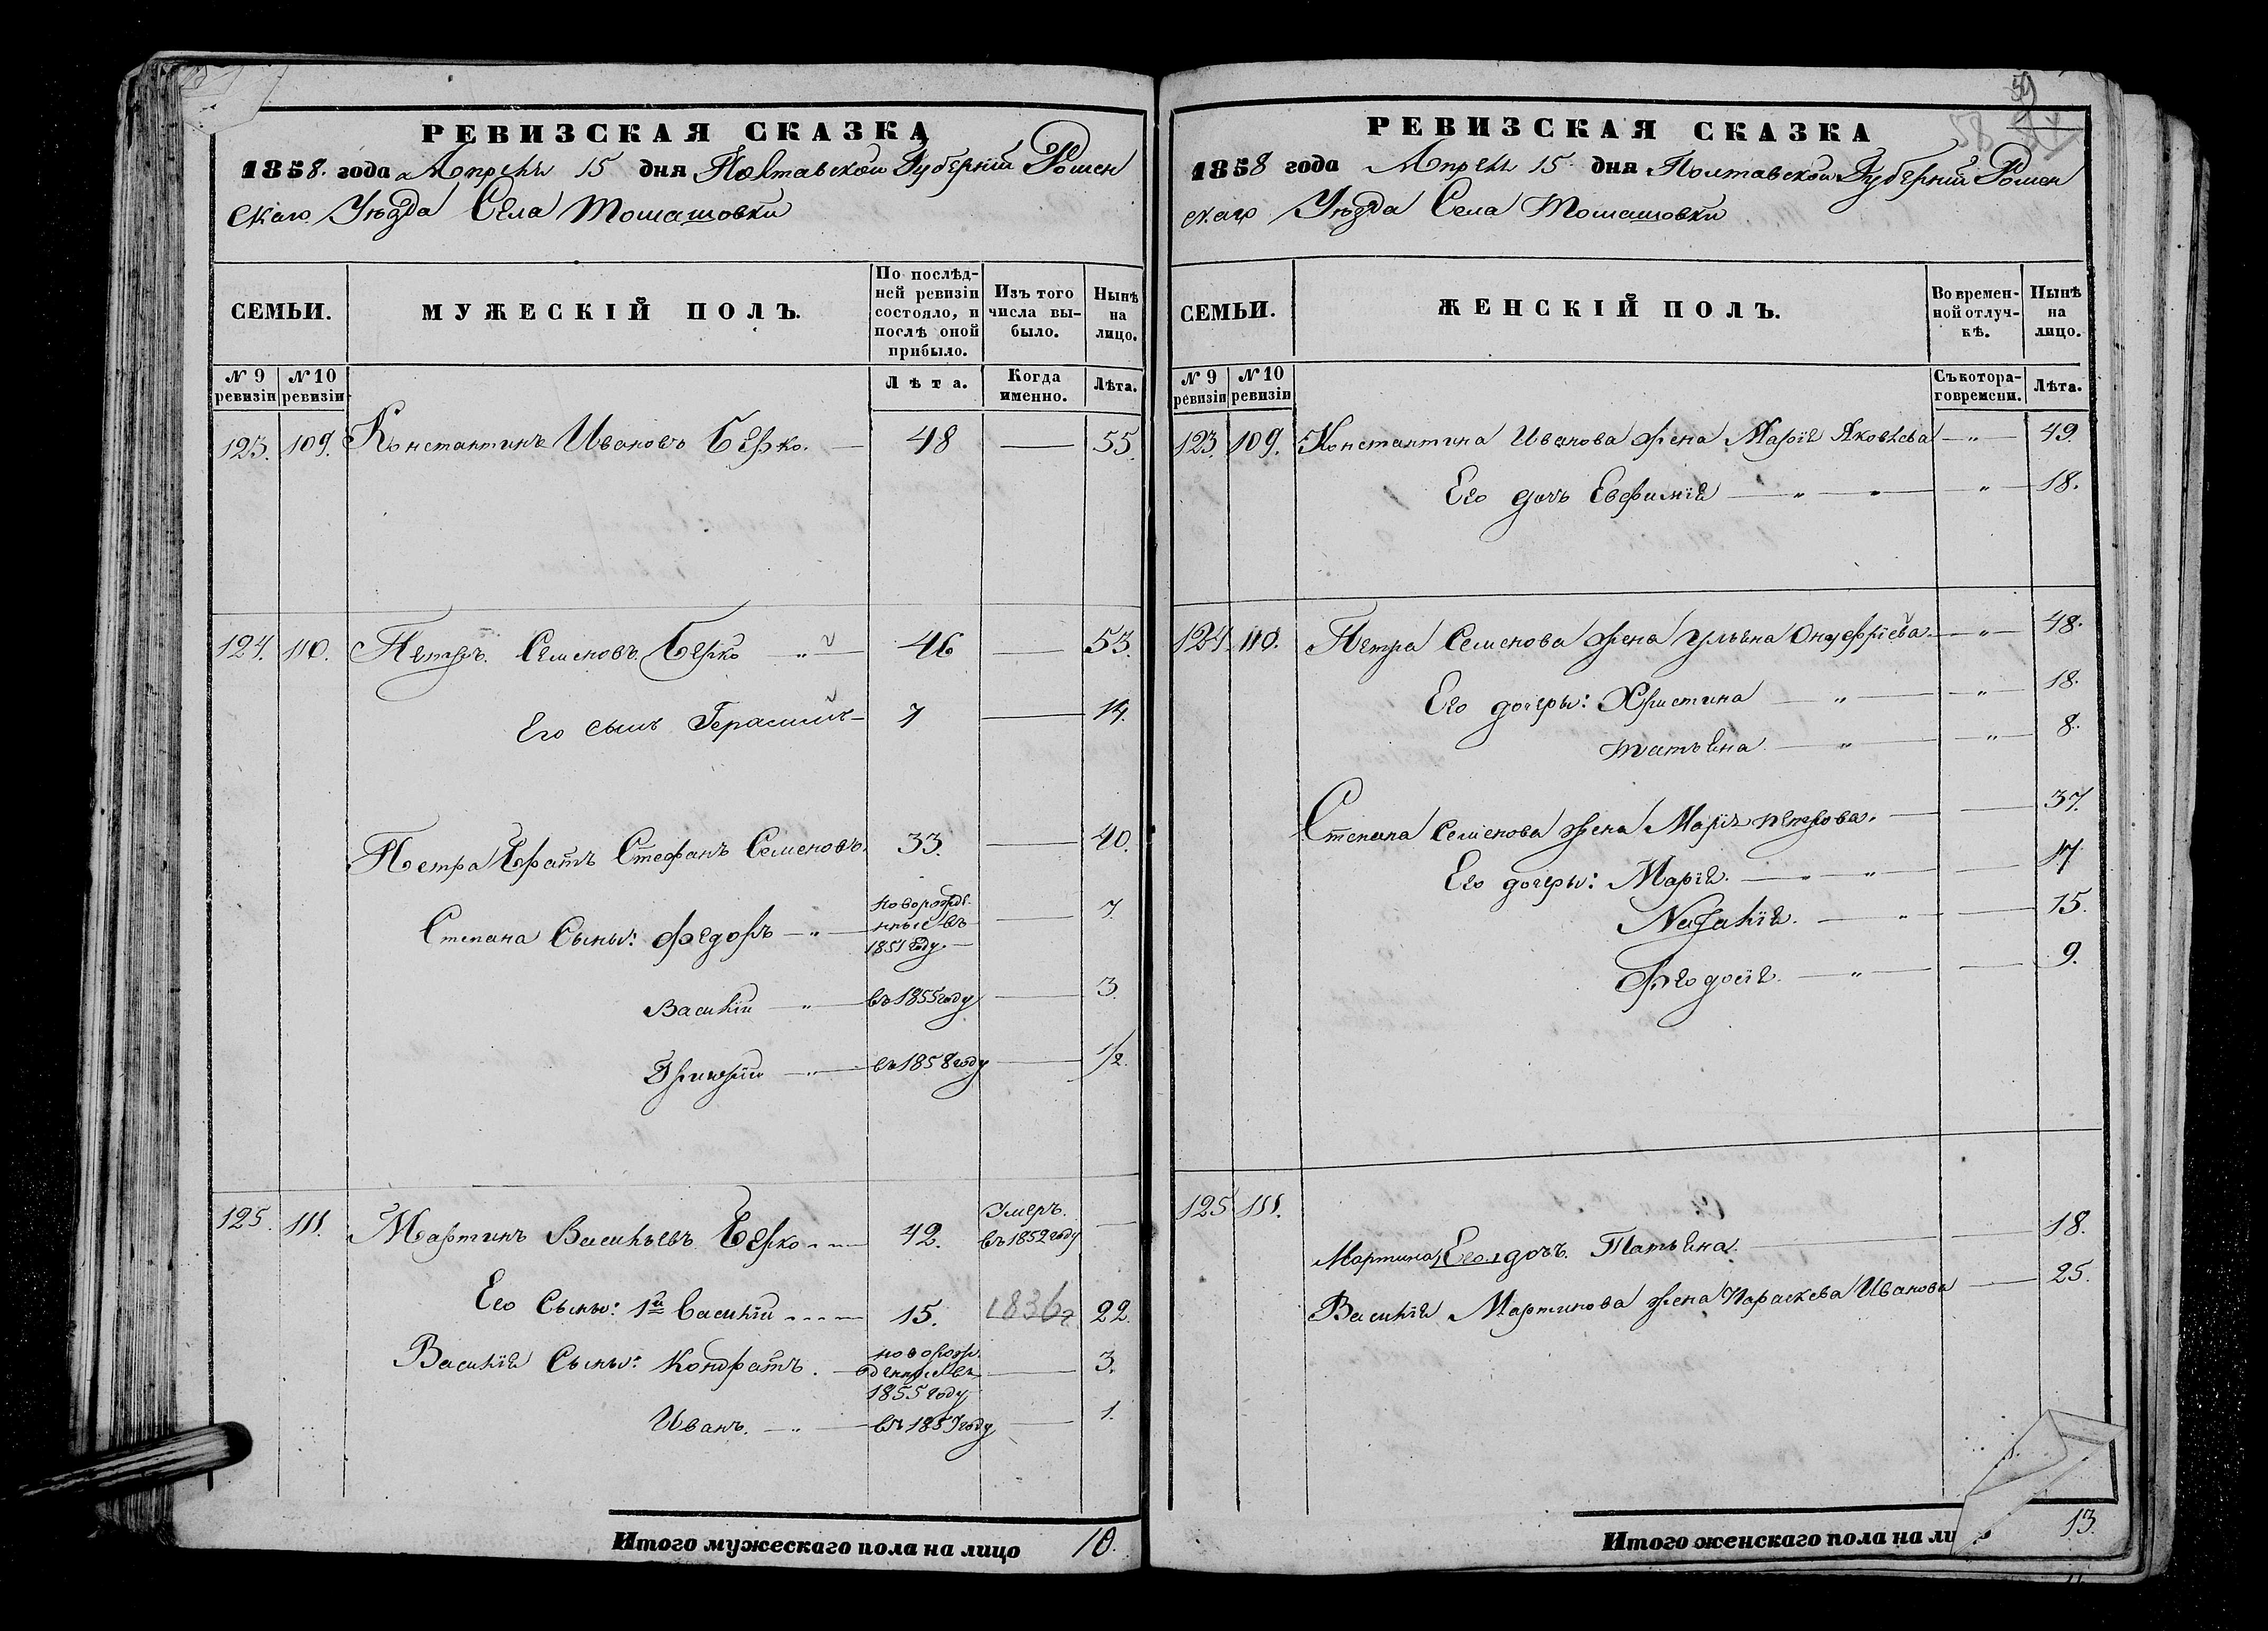 РЕВИЗСКАЯ СКАЗКА
1858. года Апрель 15 дня Полтавской Губерніи Ромен
скаго Уѣзда Села Томашовки
СЕМЬИ.
МУЖЕСКІЙ ПОЛЪ.
По послѣд-
ней ревизіи
состояло, и
послѣ оной
прибыло.
Изъ того
числа вы-
было.
Нынѣ
на
лицо.
№ 9
ревизіи
№ 10
ревизіи
Лѣта.
Когда
именно.
Лѣта.
123. 109. Константинъ Ивановъ Берко. 48 55.
124. 110. Петръ Семеновъ Берко 46 53.
Его сынъ Герасимъ 7 14.
Петра братъ Стефанъ Семеновъ. 33. 40.
Степана Сыны: Федоръ 7.
новорожде-
ные въ
1851 году.
Василій въ 1855 году 3.
Григорій въ 1858 году 1/2.
125. 111. Мартинъ Васильевъ Берко 42. Умеръ. въ 1852 году
Его Сыны: 1й Василій 15. 1836 22.
Василія Сыны: Кондратъ. 3.
новорож-
денные въ
1855 году
Иванъ. въ 1857 году 1.
Итого мужескаго пола на лицо 10.
РЕВИЗСКАЯ СКАЗКА
1858 года Апреля 15 дня Полтавской Губерніи Ромен
скаго Уѣзда Села Томашовки
СЕМЬИ.
ЖЕНСКІЙ ПОЛЪ.
Во времен-
ной отлуч-
кѣ.
Нынѣ
на
лицо.
№ 9
ревизіи
№ 10
ревизіи
Съ котора-
го времени.
Лѣта.
123. 109. Константина Иванова жена Марія Яковлева 49.
Его дочь Евфимія 18.
124. 110. Петра Семенова жена Ульяна Онуфріева 48.
Его дочеры: Христина 18.
Татьяна 8.
Степана Семенова жена Марія Петрова. 37.
Его дочеры: Марія. 17
Наталія. 15.
Феодосія. 9.
125 111.
Мартина Его дочь. Татьяна. 18.
Василія Мартинова жена Параскева Иванова 25.
Итого женскаго пола на ли 13.